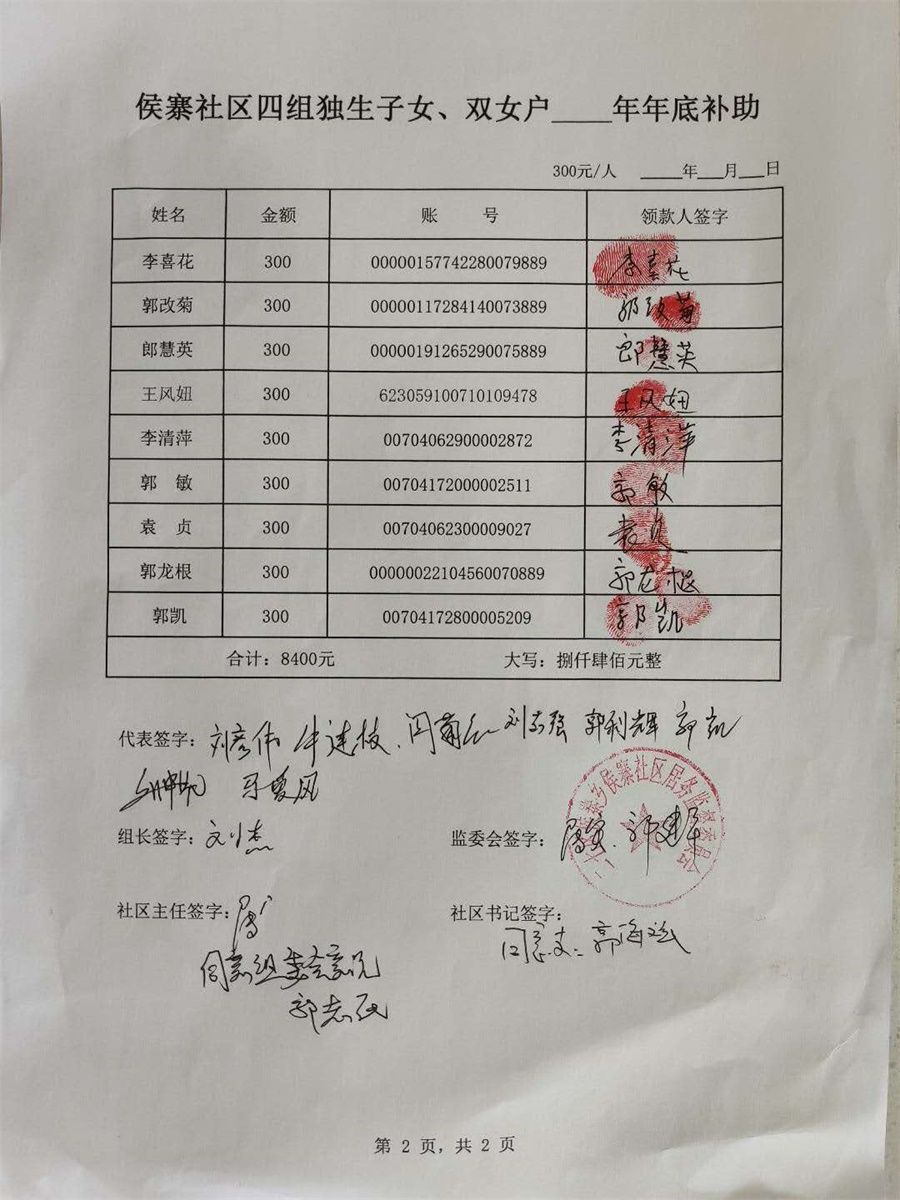 侯寨社区四组独生子女、双女户____年年底补助
300元/人 ____年___月___日
姓名 金额 账 号 领款人签字
李喜花 300 00000157742280079889 李喜花
郭改菊 300 00000117284140073889 郭改菊
郎慧英 300 00000191265290075889 郎慧英
王风妞 300 623059100710109478 王风妞
李清萍 300 00704062900002872 李清萍
郭 敏 300 00704172000002511 郭敏
袁 贞 300 00704062300009027 袁贞
郭龙根 300 00000022104560070889 郭龙根
郭凯 300 00704172800005209 郭凯
合计：8400元 大写：捌仟肆佰元整
代表签字：刘彦伟 牛连枝、闫菊红 刘志强 郭利辉 郭凯
组长签字：刘杰 监委会签字：
侯寨乡侯寨社区居务监督委员会
社区主任签字： 社区书记签字：
同意支 郭海斌
同意组委会意见
郭志民
第 2 页，共 2 页